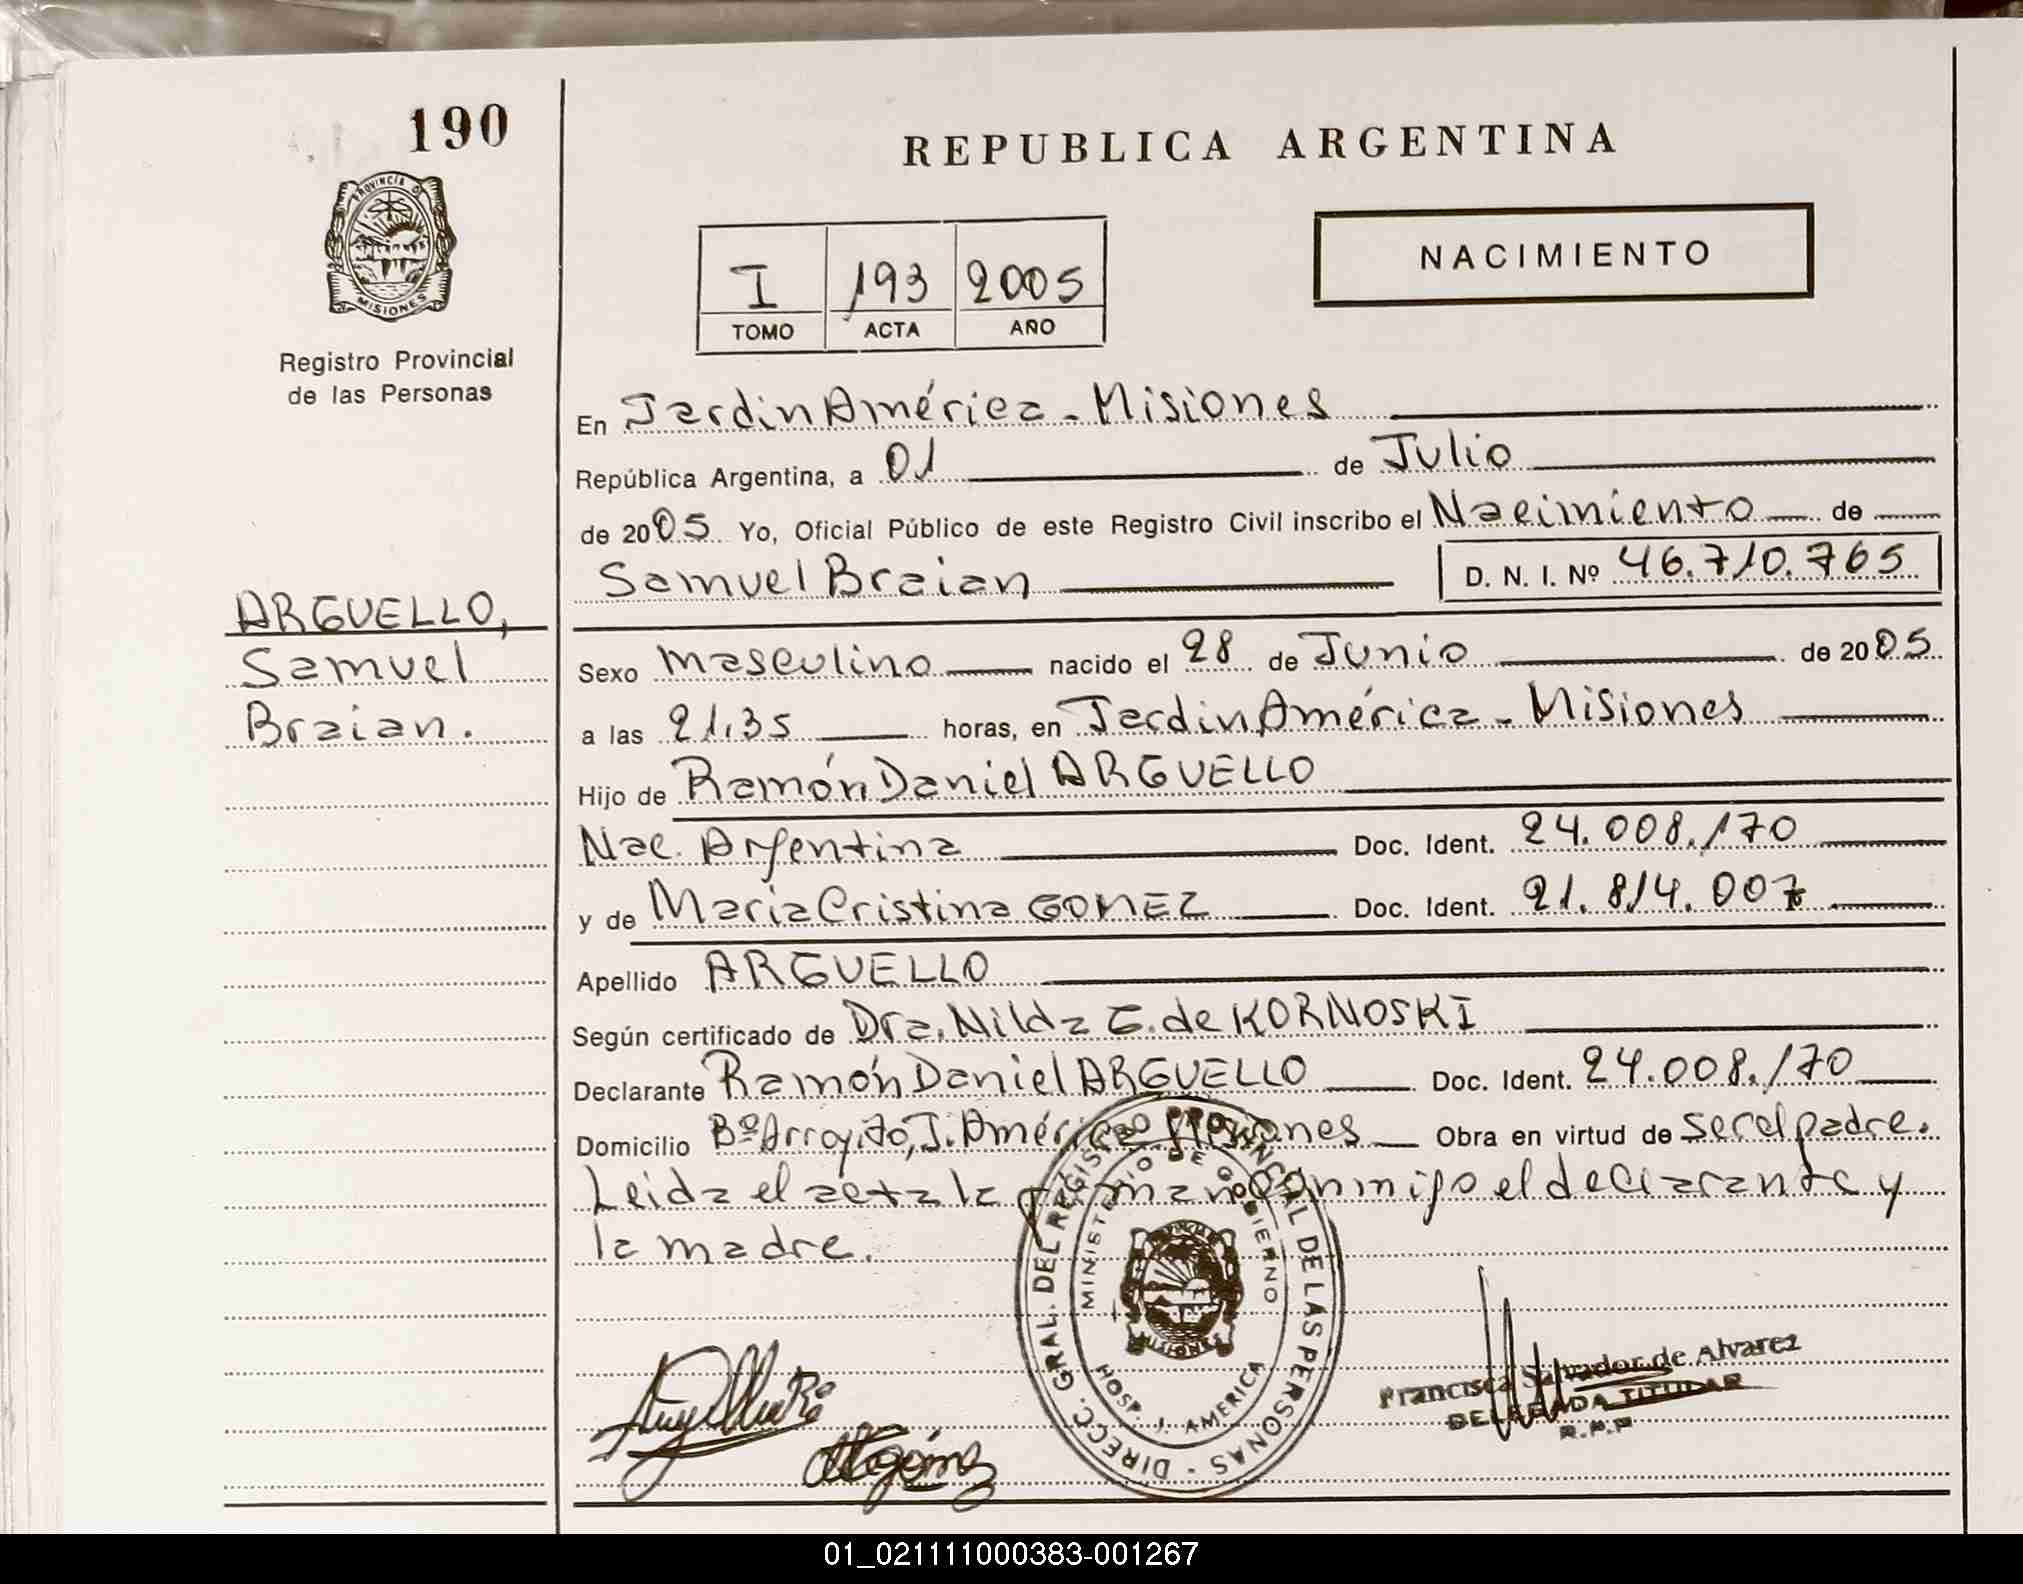 190
PROVINCIA D
MISIONES
Registro Provincial
de las Personas
ARGUELLO,
Samuel
Braian.
REPUBLICA ARGENTINA
I 193 2005
TOMO ACTA AÑO
NACIMIENTO
En Jardin América - Misiones
República Argentina, a 01 de Julio
de 2005 Yo, Oficial Público de este Registro Civil inscribo el Nacimiento de
Samuel Braian D. N. I. Nº 46.710.765
Sexo masculino nacido el 28 de Junio de 2005
a las 21,35 horas, en Jardin América - Misiones
Hijo de Ramón Daniel ARGUELLO
Nac. Argentina Doc. Ident. 24.008.170
y de Maria Cristina GOMEZ Doc. Ident. 21.814.007
Apellido ARGUELLO
Según certificado de Dra. Nilda G. de KORNOSKI
Declarante Ramón Daniel ARGUELLO Doc. Ident. 24.008.170
Domicilio Bº Arroyito, J. América Misiones Obra en virtud de ser el padre.
Leida el acta la firman conmigo el declarante y
la madre.
DIRECC. GRAL. DEL REGISTRO PROVINCIAL DE LAS PERSONAS -
MINISTERIO DE GOBIERNO
MISIONES
HOSP. J. AMERICA
Francisca Salvador de Alvarez
DELEGADA TITULAR
R.P.P
01_021111000383-001267